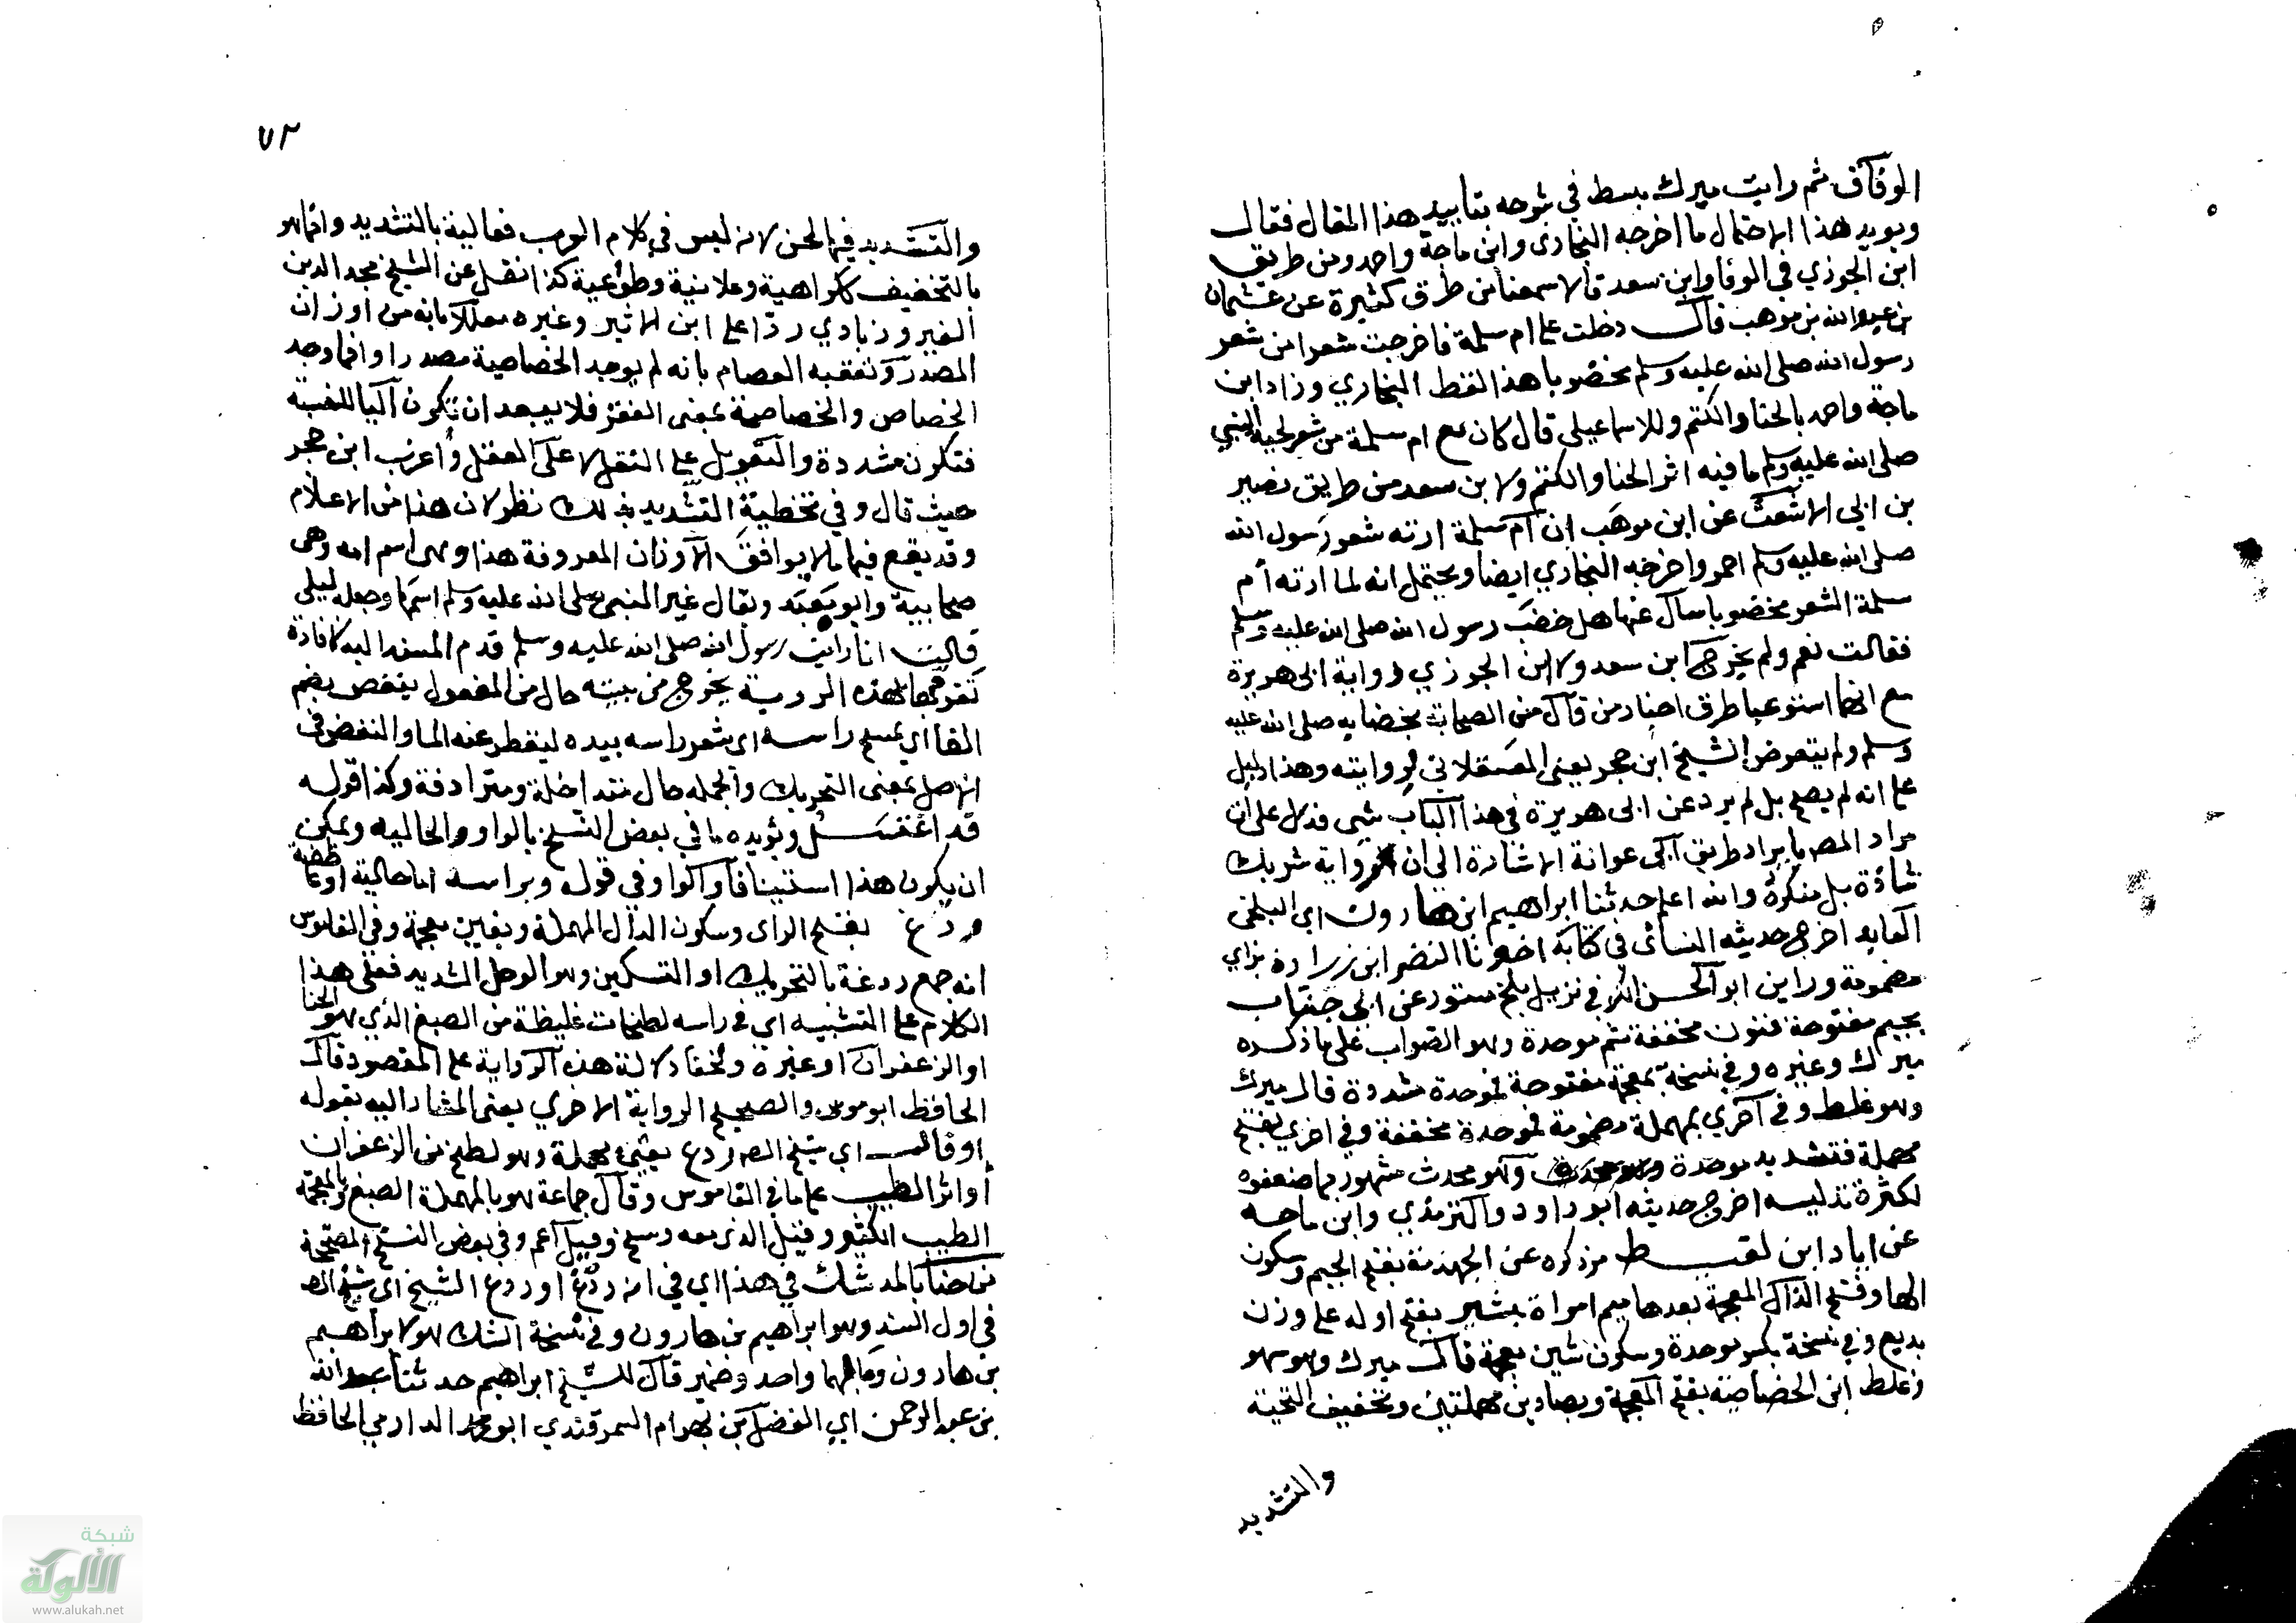 الوفاق ثم رايت ميرك بسط في شرحه بتاييد هذا المقال فقال
ويويد هذا الاحتمال ما اخرجه البخاري وابن ماجة واحمد ومن طريق
ابن الجوزي في الوفا وابن سعد قالا سمعنا من طرق كثيرة عن عثمان
بن عبد الله بن موهب قال دخلت على ام سلمة فاخرجت شعرا من شعر
رسول الله صلى الله عليه وسلم مخضوبا هذا لفظ البخاري وزاد ابن
ماجة واحمد بالحنا والكتم وللاسماعيلي قال كان مع ام سلمة من شعر لحية النبي
صلى الله عليه وسلم ما فيه اثر الحنا والكتم ولابن سعد من طريق نصير
بن ابي الاشعث عن ابن موهب ان ام سلمة ارته شعر رسول الله
صلى الله عليه وسلم احمر واخرجه البخاري ايضا ويحتمل انه لما ارته ام
سلمة الشعر مخضوبا سال عنها هل خضب رسول الله صلى الله عليه وسلم
فقالت نعم ولم يخرج ابن سعد ولا ابن الجوزي رواية ابي هريرة
مع انهما استوعبا طرق اخبار من قال من الصحابة بخضابه صلى الله عليه
وسلم ولم يتعرض الشيخ ابن حجر يعني العسقلاني لروايته وهذا دليل
على انه لم يصح بل لم يرد عن ابي هريرة في هذا الباب شي فدل على ان
مراد المص بايراد طريق ابي عوانة الاشارة الى ان رواية شريك
شاذة بل منكرة والله اعلم حدثنا ابراهيم ابن هارون اي البلخي
العابد اخرج حديثه النسائي في كتابه اخبرنا النضر ابن زرارة بزاي
مضمومة وراين ابو الحسن الكوفي نزيل بلخ مستور عن ابي جناب
بجيم مفتوحة فنون مخففة ثم موحدة وهو الصواب على ما ذكره
ميرك وغيره وفي نسخة بمعجمة مفتوحة فموحدة مشددة قال ميرك
وهو غلط وفي اخري بمهملة مضمومة فموحدة مخففة وفي اخري بفتح
مهملة فتشديد موحدة وهو محدث مشهور ربما ضعفوه
لكثرة تدليسه اخرج حديثه ابو داود والترمذي وابن ماجه
عن اياد ابن لقيط مر ذكره عن الجهذمة بفتح الجيم وسكون
الها وفتح الذال المعجمة بعدها ميم امراة بشير بفتح اوله على وزن
بديع وفي نسخة بكسر موحدة وسكون شين معجمة قال ميرك وهو سهو
وغلط ابن الخصاصية بفتح المعجمة وبصادين مهملتين وتخفيف التحتية
والتشديد
٧٢
والتشديد فيها لحن لانه ليس في كلام العرب فعالية بالتشديد وانما هو
بالتخفيف ككراهية وعلانية وطوعية كذا نقل عن الشيخ مجد الدين
الفيروزبادي ردا على ابن الاثير وغيره معللا بانه من اوزان
المصدر وتعقبه العصام بانه لم يوجد الخصاصية مصدرا وانما وجد
الخصاص والخصاصة بمعنى الفقر فلا يبعد ان تكون اليا للنسبة
فتكون مشددة والتعويل على النقل لا على العقل واغرب ابن حجر
حيث قال وفي تخطية التشديد بذلك نظر لان هذا من الاعلام
وقد يقع فيها ما لا يوافق الاوزان المعروفة هذا وهي اسم امه وهي
صحابية وابوه معبد ويقال غير النبي صلى الله عليه وسلم اسمها وجعله ليلى
قالت انا رايت رسول الله صلى الله عليه وسلم قدم المسند اليه لافادة
تفردها بهذه الروية يخرج من بيته حال من المفعول ينفض بضم
الفا اي يمسح راسه اي شعر راسه بيده ليقطر عنه الما والنفض في
الاصل بمعنى التحريك والجملة حال متداخلة ومترادفة وكذا قوله
قد اغتسل ويؤيده ما في بعض النسخ بالواو والحاليه ويمكن
ان يكون هذا استينافا والواو في قوله وبراسه اما حالية او عاطفة
ردغ بفتح الراي وسكون الدال المهملة وبغين معجمة وفي القاموس
انه جمع ردغة بالتحريك او التسكين وهو الوحل الشديد فعلى هذا
الكلام على التشبيه اي في راسه لطخات غليظة من الصبغ الذي هو الحنا
او الزعفران او غيره ولخفا دلالة هذه الرواية على المقصود قال
الحافظ ابو موسى والصحيح الرواية الاخري يعني المشار اليه بقوله
او قال اي شيخ المص ردع بعين مهملة وهو لطخ من الزعفران
او اثر الطيب على ما في القاموس وقال جماعة هو بالمهملة الصبغ وبالمعجمة
الطيب الكثير وقيل الذي معه وسخ وقيل اعم وفي بعض النسخ المصححة
من حنا بالمد شك في هذا اي في انه ردغ او ردع الشيخ اي شيخ المص
في اول السند وهو ابراهيم بن هارون وفي نسخة الشك هو لابراهيم
بن هارون ومآلهما واحد وضمير قال للشيخ ابراهيم حدثنا عبد الله
بن عبد الرحمن اي الفضل بن بهرام السمرقندي ابو محمد الدارمي الحافظ
شبكة
الألوكة
www.alukah.net